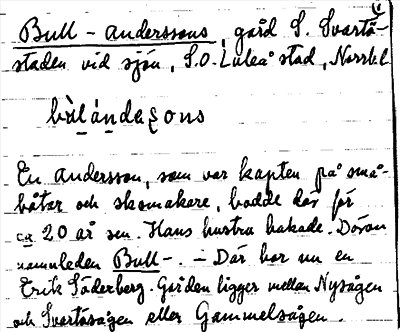 Bull-Anderssons, gård S. Svartö-
staden vid sjön, S.O. Luleå stad, Norrb.l.
En Andersson, som var kapten på små-
båtar och skomakare, bodde där för
ca 20 år sen. Hans hustru bakade. Därav
namnleden Bull-. – Där bor nu en
Erik Söderberg. Gården ligger mellan Nysågen
och Svartösågen eller Gammelsågen.